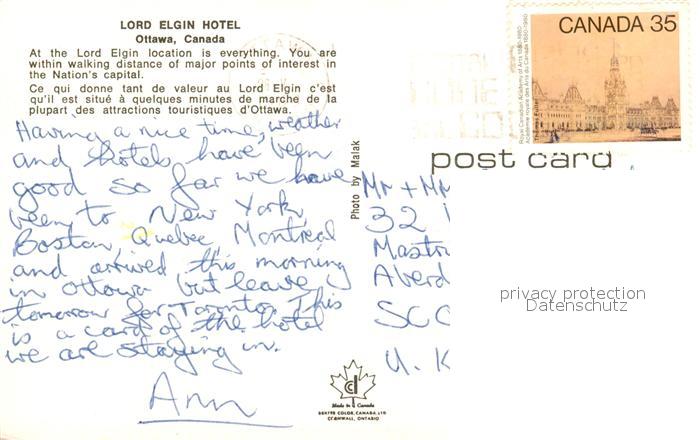 LORD ELGIN HOTEL
Ottawa, Canada
At the Lord Elgin location is everything. You are
within walking distance of major points of interest in
the Nation's capital.
Ce qui donne tant de valeur au Lord Elgin c'est
qu'il est situé à quelques minutes de marche de la
plupart des attractions touristiques d'Ottawa.
Having a nice time, weather
and hotels have been
good so far we have
been to New York,
Boston Quebec Montreal
and arrived this morning
in ottowa but leave
tomorrow for Toronto. This
is a card of the hotel
we are staying in.
Ann
Photo by Malak
Made in Canada
CORNWALL, ONTARIO
CANADA 35
Royal Canadian Academy of Arts 1880-1980
Académie royale des Arts du Canada 1880-1980
Thomas Fuller
post card
Mr + Mr
32
Mastri
Aberd
SCO
U. K
privacy protection
Datenschutz